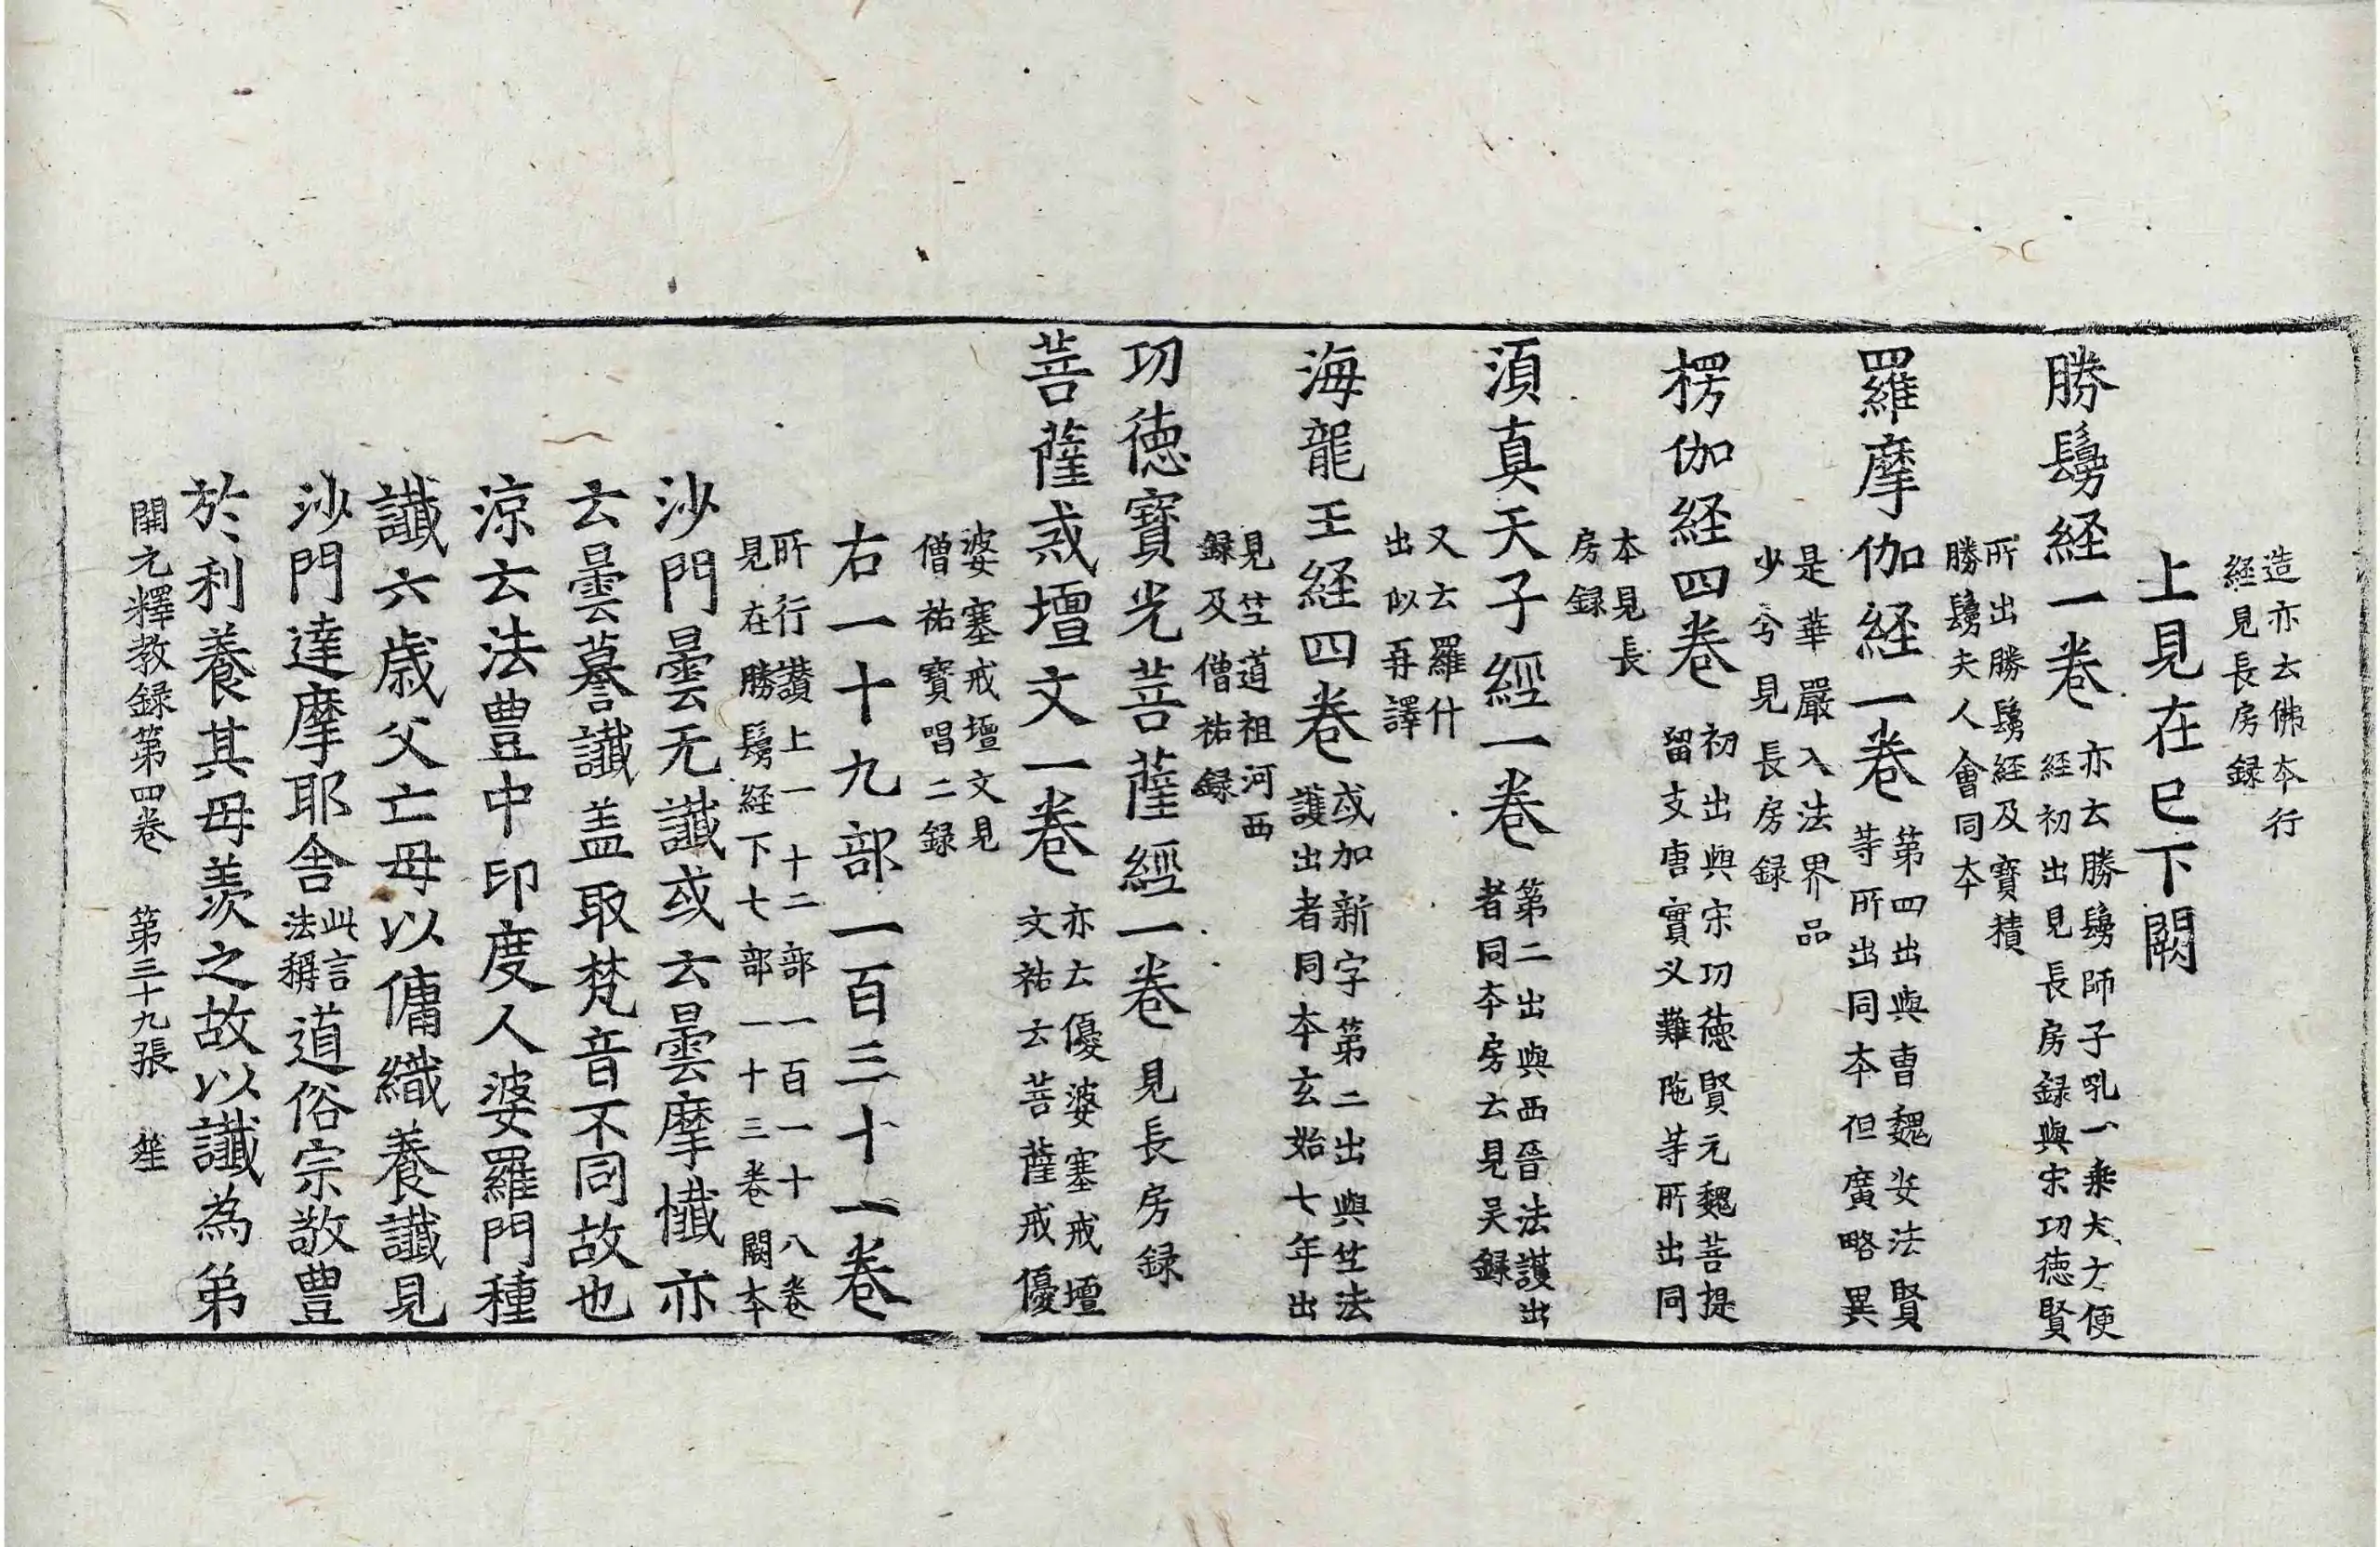 造亦云佛本行
経見長房録
上見在已下闕
勝鬘経一巻
亦云勝鬘師子吼一乗大方便
経初出見長房録與宋功徳賢
所出勝鬘経及寳積
勝鬘夫人會同本
羅摩伽経一巻
第四出與曹魏安法賢
等所出同本但廣略異
是華嚴入法界品
少兮見長房録
楞伽経四巻
初出與宋功徳賢元魏菩提
留支唐實叉難陁等所出同
本見長
房録
湏真天子經一巻
第二出與西晉法護出
者同本房云見吴録
又云羅什
出似再譯
海龍王経四巻
或加新字第二出與竺法
護出者同本玄始七年出
見竺道祖河西
録及僧祐録
功徳寳光菩薩經一巻
見長房録
菩薩戒壇文一巻
亦云優婆塞戒壇
文祐云菩薩戒優
婆塞戒壇文見
僧祐寳唱二録
右一十九部一百三十一巻
所行讃上一十二部一百一十八巻
見在勝鬘経下七部一十三巻闕本
沙門曇无讖或云曇摩懺亦
云曇謩讖盖取梵音不同故也
涼云法豊中印度人婆羅門種
讖六歳父亡母以傭織養讖見
沙門達摩耶舎
此言
法稱
道俗宗敬豊
於利養其母羡之故以讖為弟
開元釋教録第四巻 第三十九張 筀